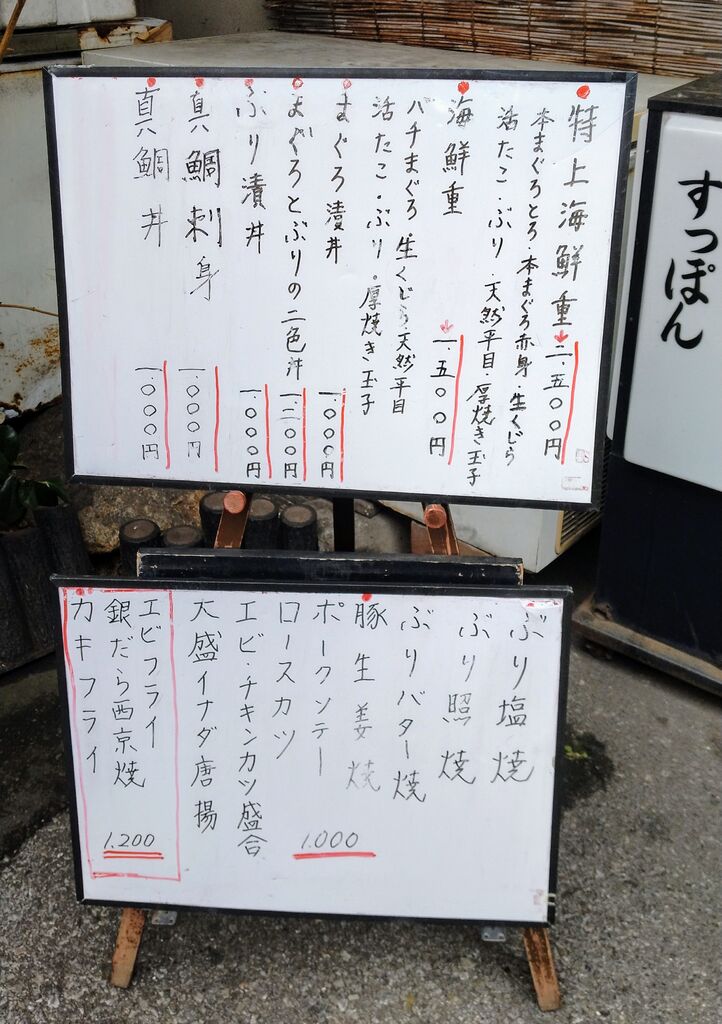 特上海鮮重 二.五〇〇円
本まぐろとろ・本まぐろ赤身・生くじら
活たこ・ぶり・天然平目・厚焼き玉子
海鮮重 一.五〇〇円
バチまぐろ・生くじら天然平目
活たこ・ぶり・厚焼き玉子
まぐろ漬丼 一.〇〇〇円
まぐろとぶりの二色丼 一.二〇〇円
ぶり漬丼 一.〇〇〇円
真鯛刺身 一.〇〇〇円
真鯛丼 一.〇〇〇円
すっぽん
ぶり塩焼
ぶり照焼
ぶりバター焼
豚生姜焼
ポークソテー
ロースカツ
エビ・チキンカツ盛合
大盛イナダ唐揚
1.000
エビフライ
銀だら西京焼
カキフライ
1.200